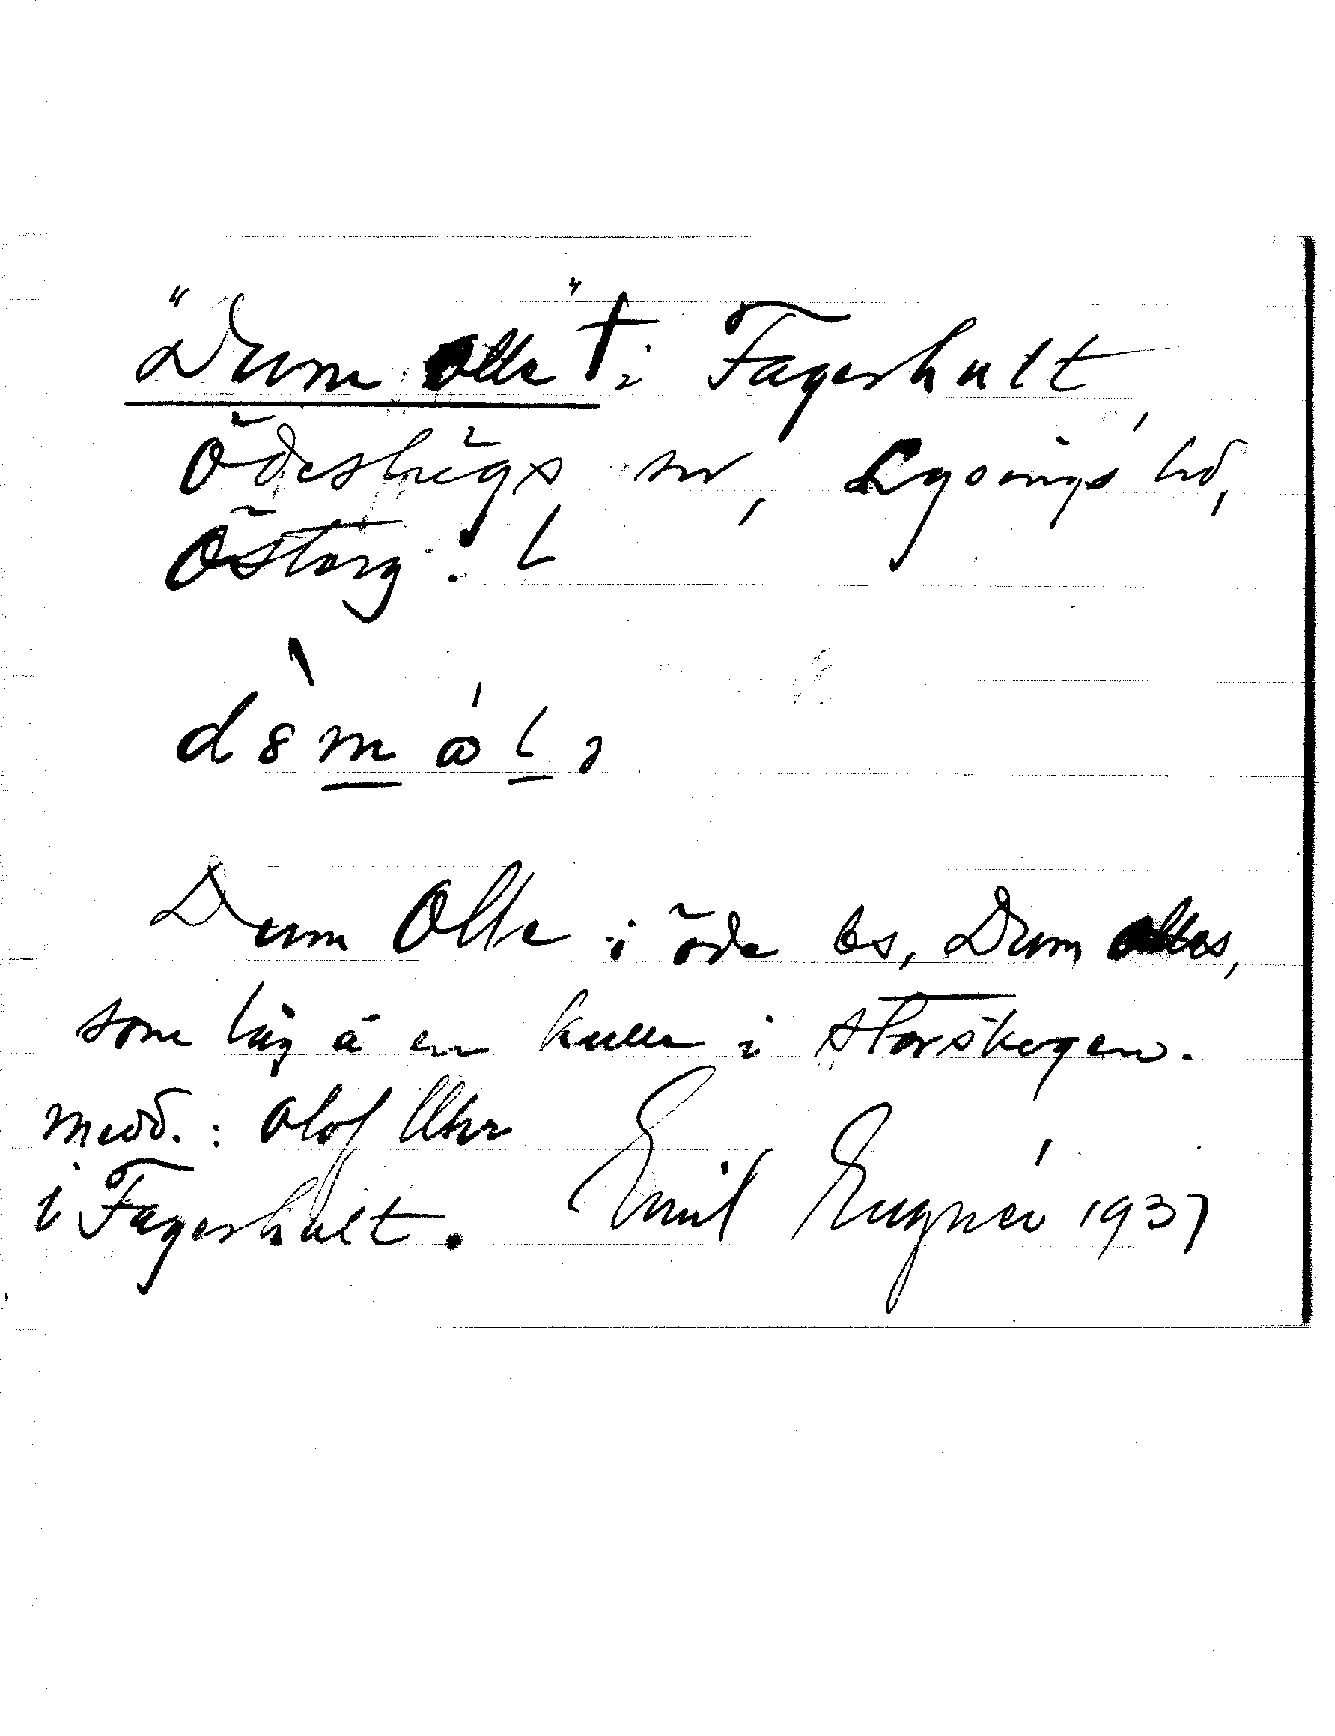 "Dum Olle" † i Fagerhult,
Ödeshögs sn, Lysings hd,
Österg. L
Dum Olle i öde bs, Dum Olles,
som låg å en kulle i storskogen.
Medd.: Olof Uhr
i Fagerhult. Emil Eugnér 1937